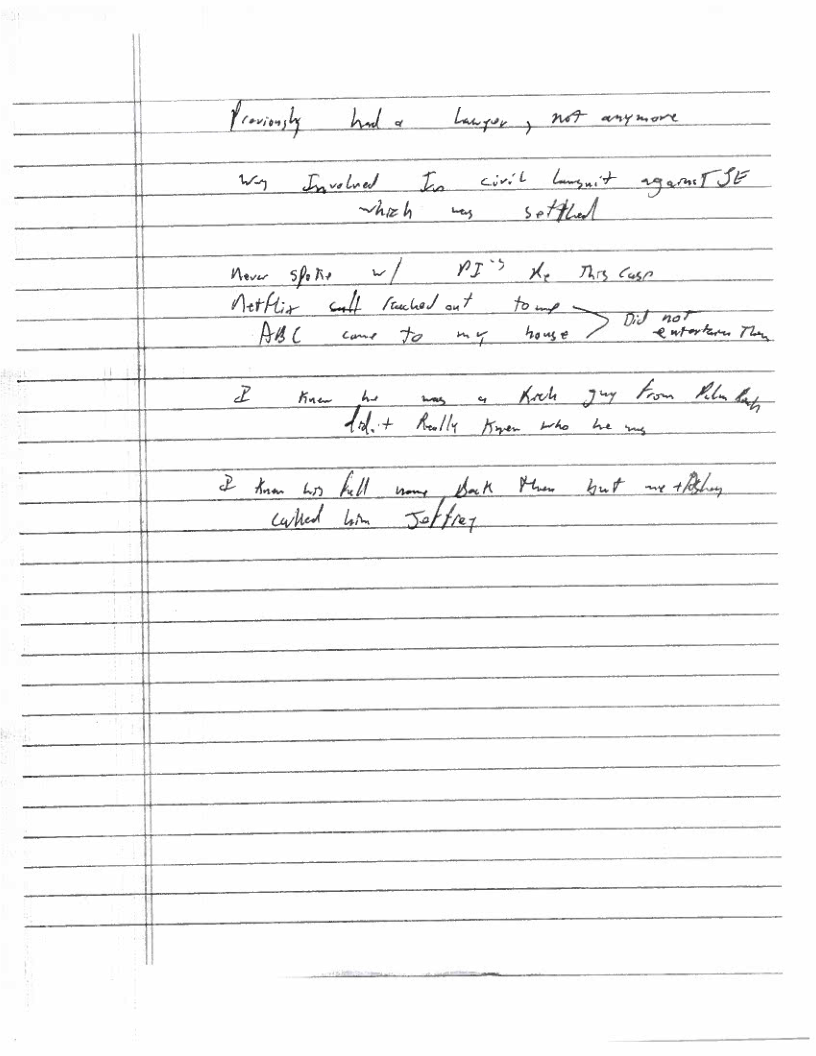 Previously had a Lawyer, not anymore
Was Involved In civil Lawsuit against JE
which was settled
Never spoke w/ PI's Re This Case
Netflix reached out to me
ABC came to my house > Did not entertain Them
I knew he was a Rich guy From Palm Beach
didn't Really Know who he was
I knew his full name Back then but me +
called him Jeffrey